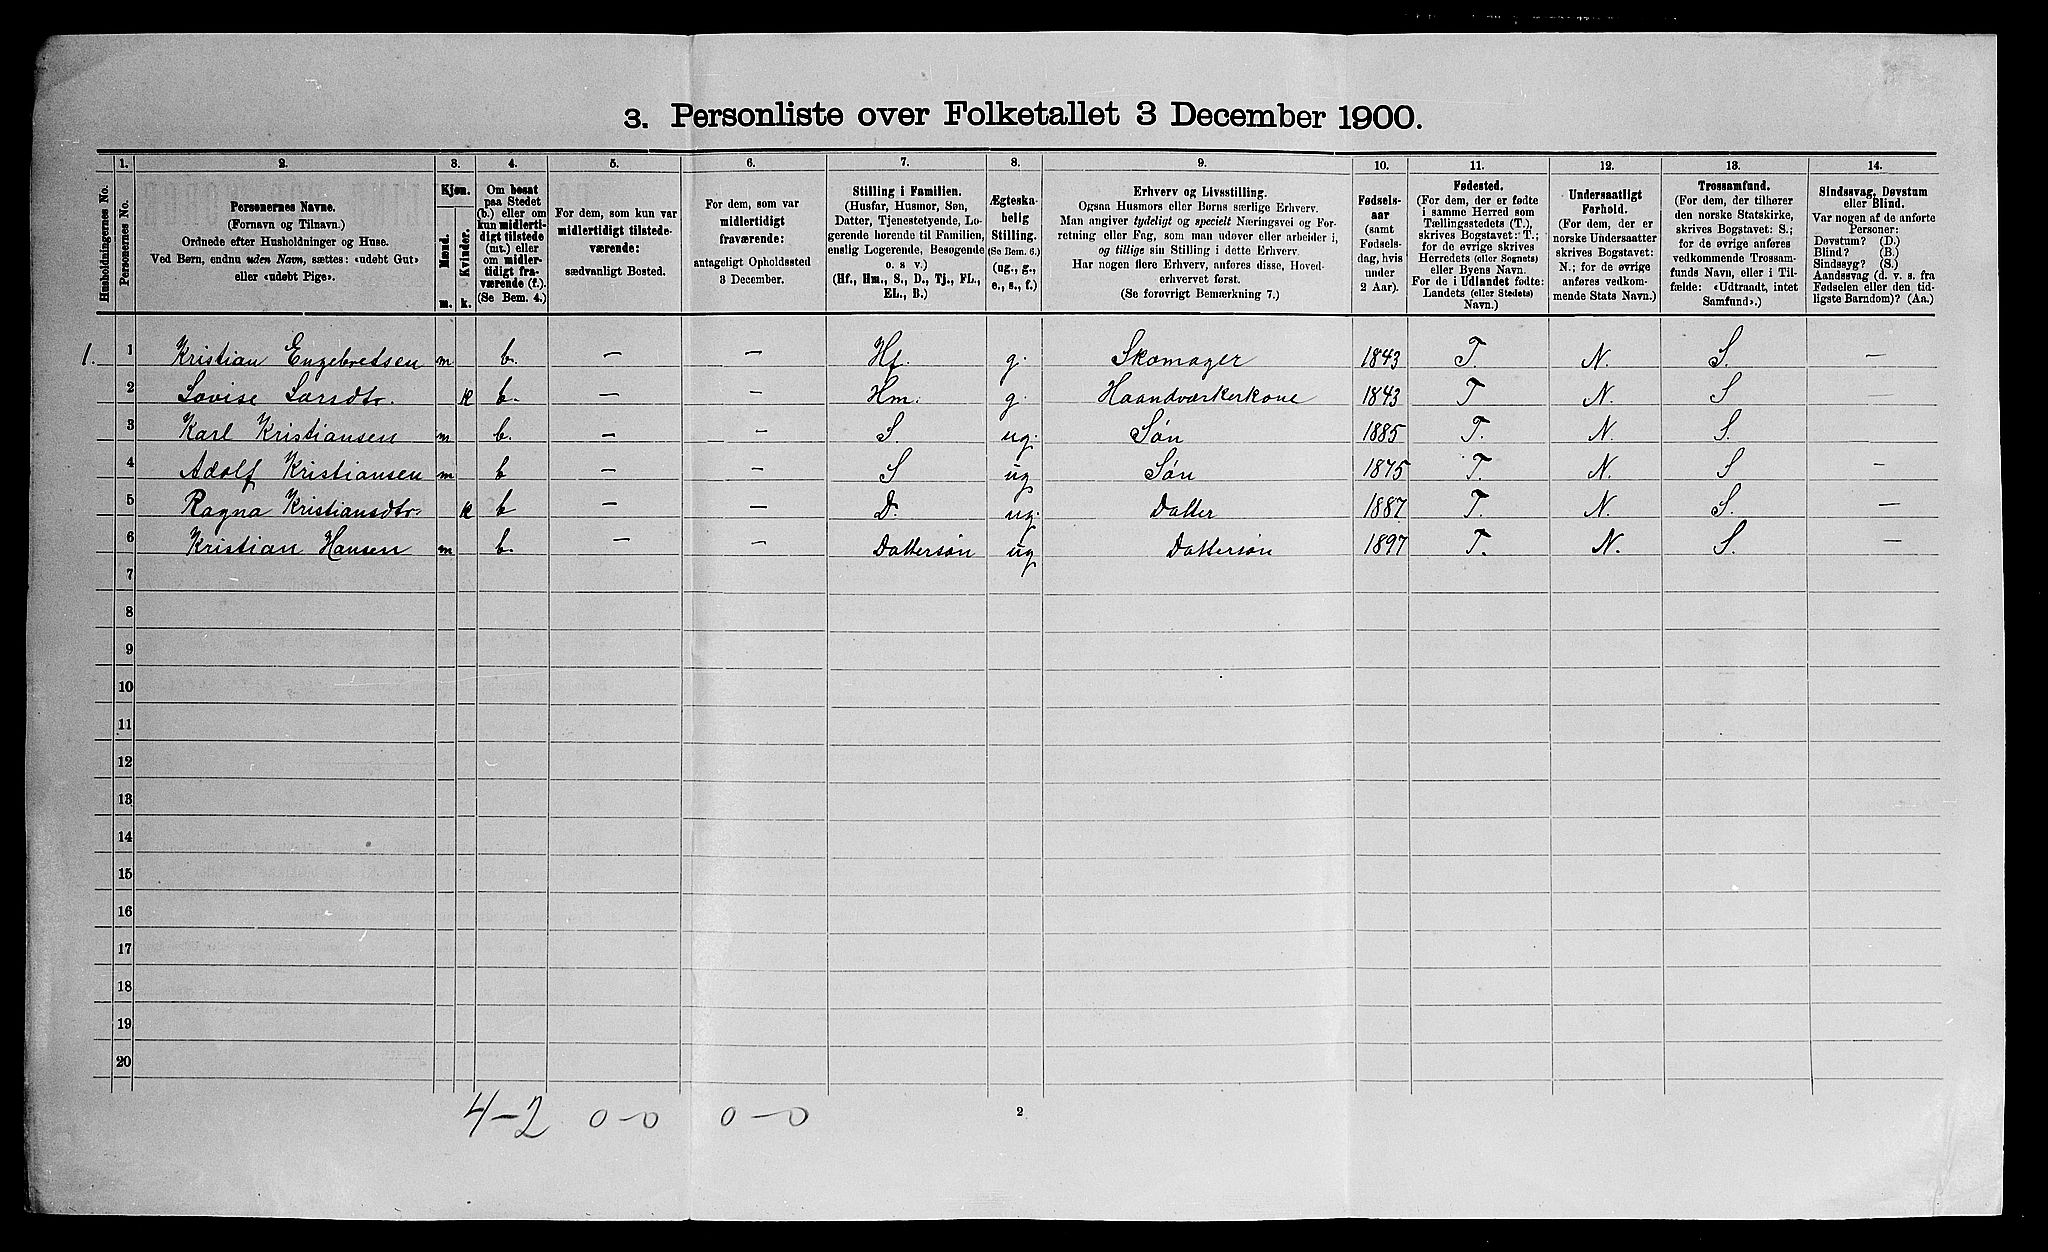 3. Personliste over Folketallet 3 December 1900.
Husholdningernes No.
1.
Personernes No.
2.
Personernes Navne.
(Fornavn og Tilnavn.)
Ordnede efter Husholdninger og Huse.
Ved Børn, endnu uden Navn, sættes: «udøbt Gut»
eller «udøbt Pige».
3.
Kjøn.
Mænd.
m.
Kvinder.
k.
4.
Om bosat
paa Stedet
(b.) eller om
kun midlerti-
digt tilstede
(mt.) eller
om midler-
tidigt fra-
værende (f.).
(Se Bem. 4.)
5.
For dem, som kun var
midlertidigt tilstede-
værende:
sædvanligt Bosted.
6.
For dem, som var
midlertidigt
fraværende:
antageligt Opholdssted
3 December.
7.
Stilling i Familien.
(Husfar, Husmor, Søn,
Datter, Tjenestetyende, Lo-
gerende hørende til Familien,
enslig Logerende, Besøgende
o. s v.)
(Hf., Hm., S., D., Tj., FL.,
EL., B.)
8.
Ægteska-
belig
Stilling.
(Se Bem. 6.)
(ug., g.,
e., s., f.)
9.
Erhverv og Livsstilling.
Ogsaa Husmors eller Børns særlige Erhverv.
Man angiver tydeligt og specielt Næringsvei og For-
retning eller Fag, som man udøver eller arbeider i,
og tillige sin Stilling i dette Erhverv.
Har nogen flere Erhverv, anføres disse, Hoved-
erhvervet først.
(Se forøvrigt Bemærkning 7.)
10.
Fødsels-
aar
(samt
Fødsels-
dag, hvis
under
2 Aar).
11.
Fødested.
(For dem, der er fødte
i samme Herred som
Tællingsstedets (T.),
skrives Bogstavet: T.;
for de øvrige skrives
Herredets (eller Sognets)
eller Byens Navn.
For de i Udlandet fødte:
Landets (eller Stedets)
Navn.)
12.
Undersaatligt
Forhold.
(For dem, der er
norske Undersaatter
skrives Bogstavet:
N.; for de øvrige
anføres vedkom-
mende Stats Navn.)
13.
Trossamfund.
(For dem, der tilhører
den norske Statskirke,
skrives Bogstavet: S.;
for de øvrige anføres
vedkommende Trossam-
funds Navn, eller i Til-
fælde: «Udtraadt, intet
Samfund».)
14.
Sindssvag, Døvstum
eller Blind.
Var nogen af de anførte
Personer:
Døvstum? (D.)
Blind? (B.)
Sindssyg? (S.)
Aandssvag (d. v. s. fra
Fødselen eller den tid-
ligste Barndom)? (Aa.)
1. 1 Kristian Engebretsen m b. – – Hf. g. Skomager 1843 T. N. S. –
2 Lovise Larsdtr. k b. – – Hm. g. Haandværkerkone 1843 T N. S –
3 Karl Kristiansen m b. – – S. ug. Søn 1885 T. N. S. –
4 Adolf Kristiansen m b – – S ug Søn 1875 T. N. S –
5 Ragna Kristiansdtr. k b – – D. ug. Datter 1887 T. N. S. –
6 Kristian Hansen m b. – – Dattersøn ug Dattersøn 1897 T. N. S. –
7
8
9
10
11
12
13
14
15
16
17
18
19
20
4–2 0–0 0–0
2